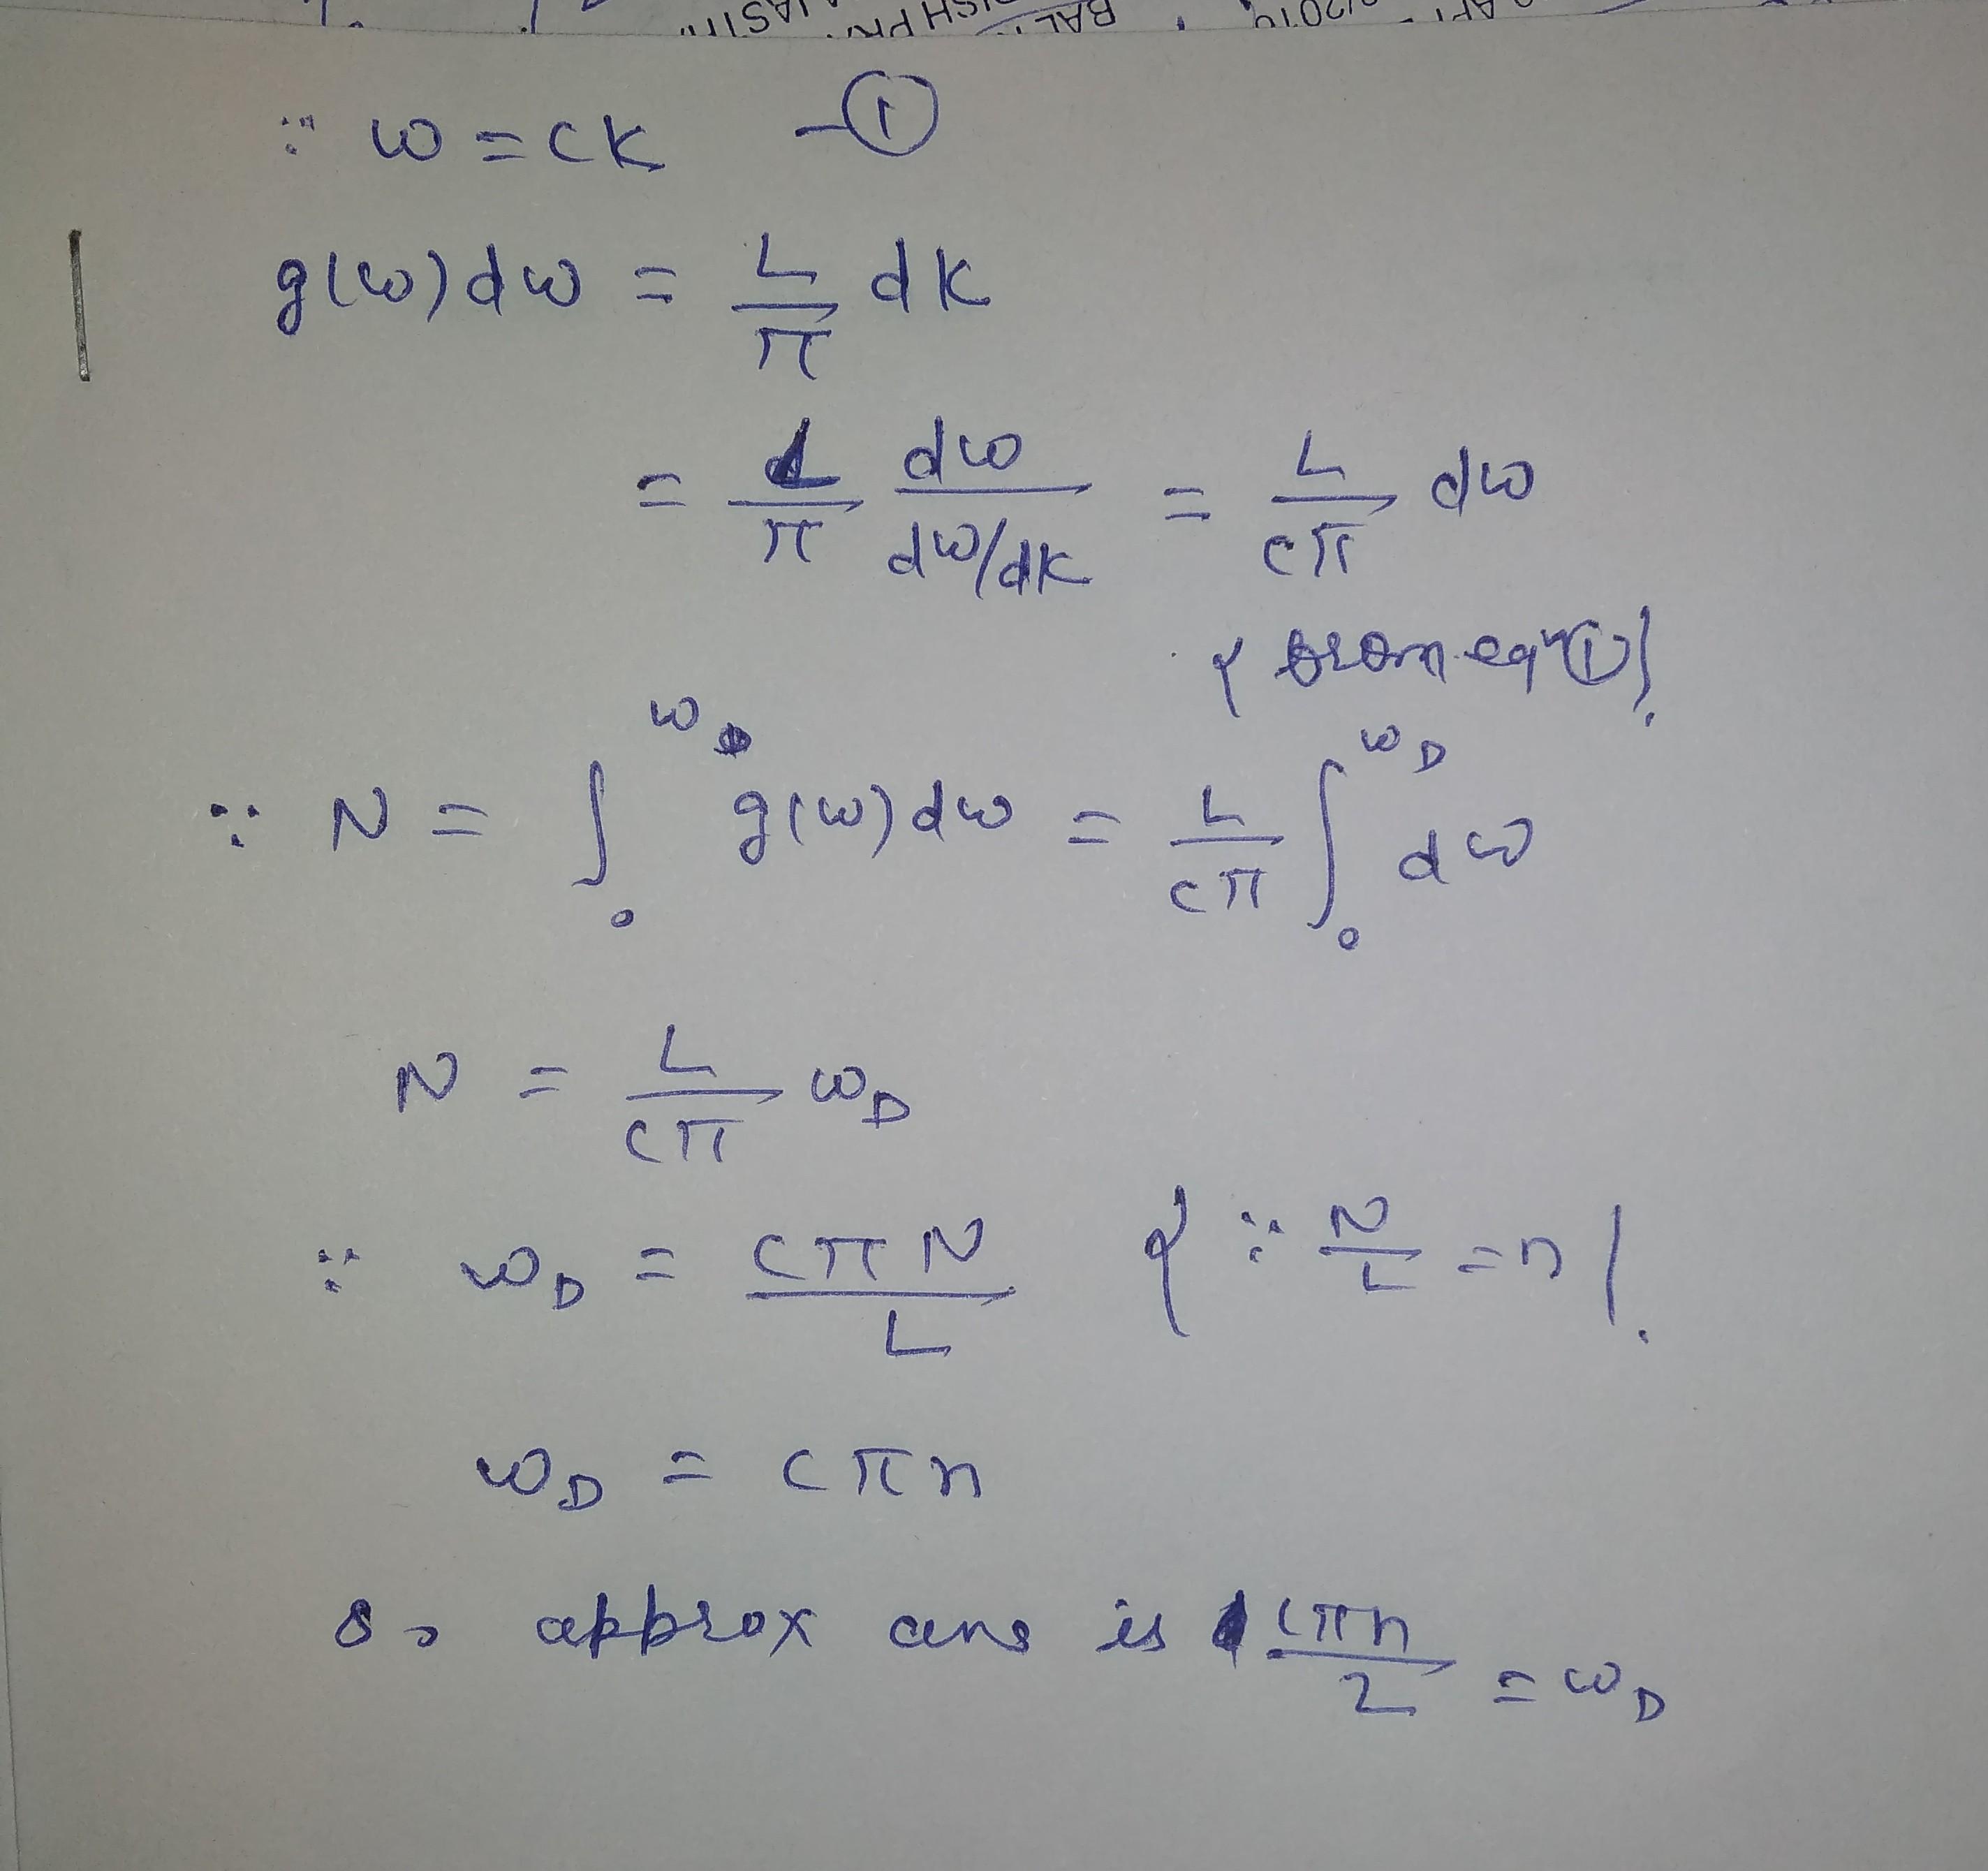 ∵ ω = CK —①
g(ω)dω = L/π dK
= L/π dω/(dω/dK) = L/(cπ) dω
{from eqⁿ ①}.
∵ N = ∫₀^ω_D g(ω)dω = L/(cπ) ∫₀^ω_D dω
N = L/(cπ) ω_D
∵ ω_D = CπN/L {∵ N/L = n}.
ω_D = cπn
So approx ans is cπn/2 = ω_D